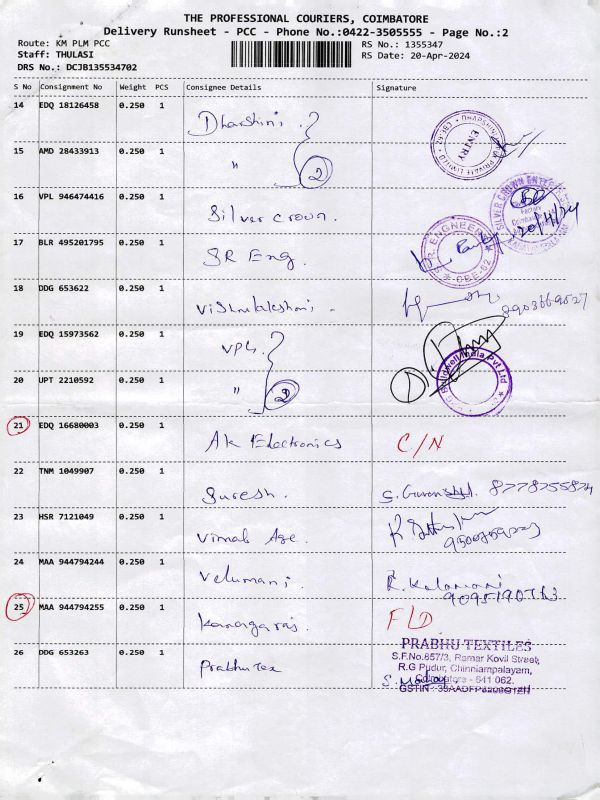 THE PROFESSIONAL COURIERS, COIMBATORE
Delivery Runsheet - PCC - Phone No.:0422-3505555 - Page No.:2
Route: KM PLM PCC
Staff: THULASI
DRS No.: DCJB135534702
RS No.: 1355347
RS Date: 20-Apr-2024
S No Consignment No Weight PCS Consignee Details Signature
14 EDQ 18126458 0.250 1 Dharshini
ENTRY
15 AMD 28433913 0.250 1 " 2
16 VPL 946474416 0.250 1 Silver crown.
SILVER CROWN
20/4/24
17 BLR 495201795 0.250 1 SR Eng.
CBE-62
18 DDG 653622 0.250 1
19 EDQ 15973562 0.250 1 VPL.
20 UPT 2210592 0.250 1 " 2
India Pvt Ltd
21 EDQ 16680003 0.250 1 AK Electronics C/N
22 TNM 1049907 0.250 1 Suresh.
23 HSR 7121049 0.250 1 Vimal Age.
24 MAA 944794244 0.250 1 Velumani.
25 MAA 944794255 0.250 1 Kanagaraj. FLD
26 DDG 653263 0.250 1 Prabhu Tex
PRABHU TEXTILES
S.F.No.657/3, Ramar Kovil Street,
R.G Pudur, Chinniampalayam,
Coimbatore - 641 062.
GSTIN